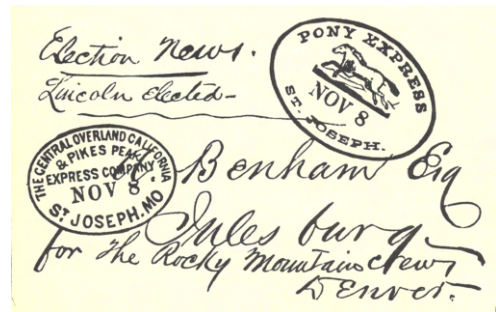 Election News.
Lincoln Elected-
PONY EXPRESS
NOV 8
ST. JOSEPH.
THE CENTRAL OVERLAND CALIFORNIA
& PIKES PEAK
EXPRESS COMPANY
NOV 8.
ST JOSEPH. MO
Benham Esq
Julesburg
for the Rocky Mountain News
Denver.